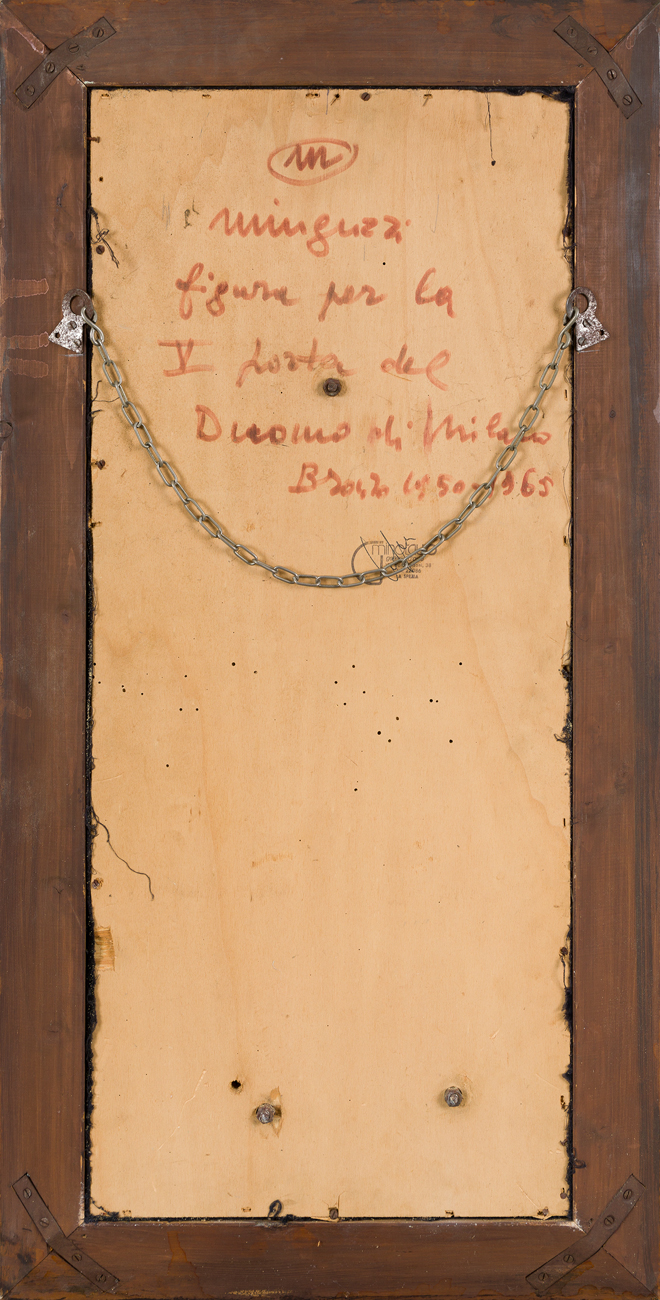 m
minguzzi
figura per la
V porta del
Duomo di Milano
Bronzo 1950-1965
LA SPEZIA